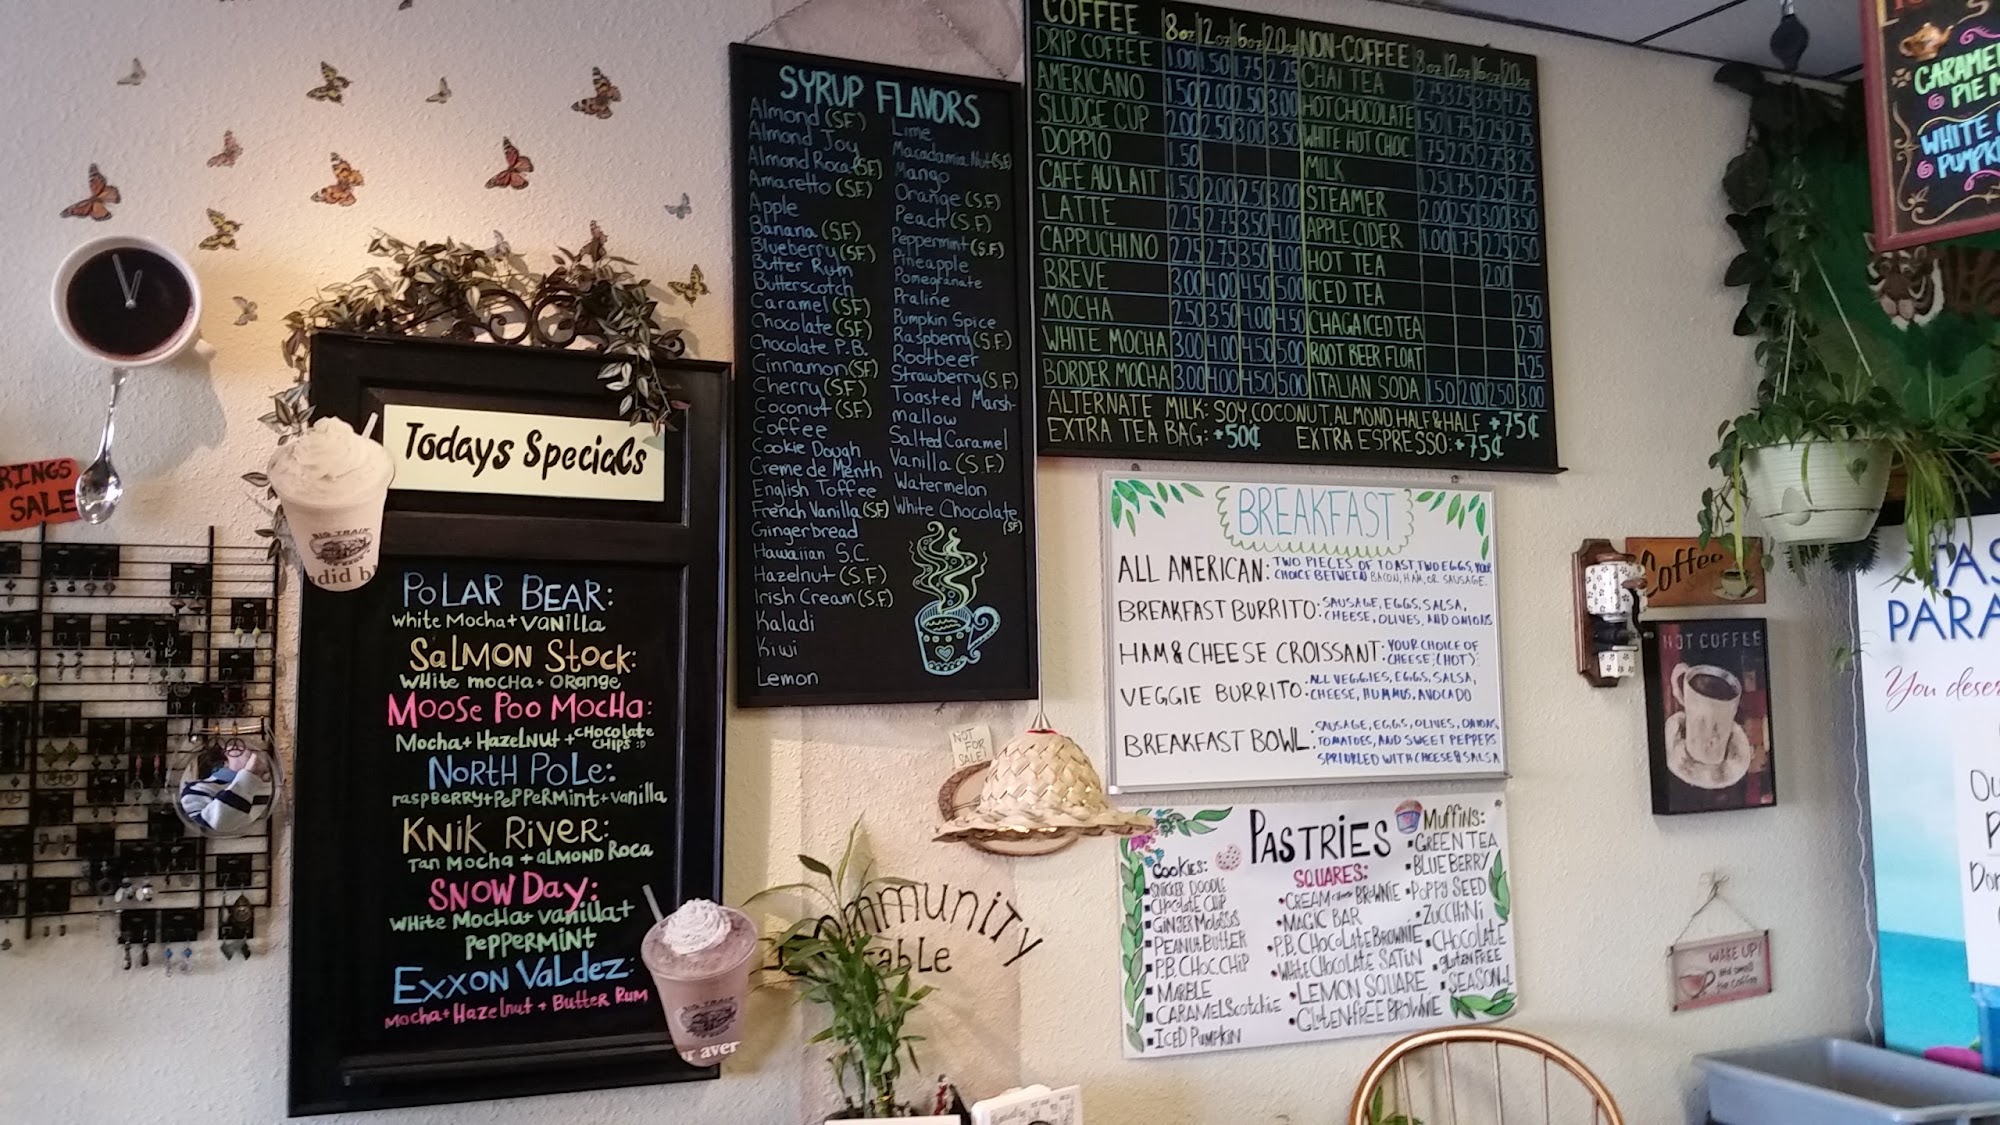 RINGS
SALE
Todays Specials
BIG TRAIN
POLAR BEAR:
White Mocha + Vanilla
SALMON STOCK:
WHite mocha + orange
MOOSE POO MOCHA:
Mocha + Hazelnut + CHocolate CHIPS :D
NORTH POLE:
raspBerry + PePPermint + Vanilla
KNIK RIVER:
Tan Mocha + ALMOND Roca
SNOW DAY:
White Mocha + Vanilla +
PePPERMINT
EXXON VALDEZ:
Mocha + Hazelnut + Butter Rum
BIG TRAIN
SYRUP FLAVORS
Almond (S.F.)
Almond Joy
Almond Roca (SF)
Amaretto (S.F.)
Apple
Banana (S.F.)
Blueberry (S.F.)
Butter Rum
Butterscotch
Caramel (SF)
Chocolate (S.F.)
Chocolate P.B.
Cinnamon (S.F.)
Cherry (S.F.)
Coconut (S.F.)
Coffee
Cookie Dough
Creme de Menth
English Toffee
French Vanilla (S.F)
Gingerbread
Hawaiian S.C.
Hazelnut (S.F.)
Irish Cream (S.F.)
Kaladi
Kiwi
Lemon
Lime
Macadamia Nut (S.F)
Mango
Orange (S.F.)
Peach (S.F.)
Peppermint (S.F.)
Pineapple
Pomegranate
Praline
Pumpkin Spice
Raspberry (S.F.)
Rootbeer
Strawberry (S.F.)
Toasted Marsh-
mallow
Salted Caramel
Vanilla (S.F.)
Watermelon
White Chocolate
(SF)
COFFEE 8oz 12oz 16oz 20oz
DRIP COFFEE 1.00 1.50 1.75 2.25
AMERICANO 1.50 2.00 2.50 3.00
SLUDGE CUP 2.00 2.50 3.00 3.50
DOPPIO 1.50
CAFÉ AU LAIT 1.50 2.00 2.50 3.00
LATTE 2.25 2.75 3.50 4.00
CAPPUCHINO 2.25 2.75 3.50 4.00
BREVE 3.00 4.00 4.50 5.00
MOCHA 2.50 3.50 4.00 4.50
WHITE MOCHA 3.00 4.00 4.50 5.00
BORDER MOCHA 3.00 4.00 4.50 5.00
NON-COFFEE 8oz 12oz 16oz 20oz
CHAI TEA 2.75 3.25 3.75 4.25
HOT CHOCOLATE 1.50 1.75 2.25 2.75
WHITE HOT CHOC. 1.75 2.25 2.75 3.25
MILK 1.25 1.75 2.25 2.75
STEAMER 2.00 2.50 3.00 3.50
APPLE CIDER 1.00 1.75 2.25 2.50
HOT TEA 2.00
ICED TEA 2.50
CHAGA ICED TEA 2.50
ROOT BEER FLOAT 4.25
ITALIAN SODA 1.50 2.00 2.50 3.00
ALTERNATE MILK: SOY, COCONUT, ALMOND HALF & HALF +75¢
EXTRA TEA BAG: +50¢ EXTRA ESPRESSO: +75¢
BREAKFAST
ALL AMERICAN: TWO PIECES OF TOAST, TWO EGGS, YOUR
CHOICE BETWEEN BACON, HAM, OR SAUSAGE.
BREAKFAST BURRITO: SAUSAGE, EGGS, SALSA,
CHEESE, OLIVES, AND ONIONS
HAM & CHEESE CROISSANT: YOUR CHOICE OF
CHEESE (HOT)
VEGGIE BURRITO: ALL VEGGIES, EGGS, SALSA,
CHEESE, HUMMUS, AVOCADO
BREAKFAST BOWL: SAUSAGE, EGGS, OLIVES, ONIONS,
TOMATOES, AND SWEET PEPPERS
SPRINKLED WITH CHEESE & SALSA
PASTRIES
COOKIES:
SNICKER DOODLE
CHOCOLATE CHIP
GINGER MOLASSES
PEANUT BUTTER
P.B. CHOC. CHIP
MARBLE
CARAMEL Scotchie
ICED PUMPKIN
SQUARES:
CREAM cheese BROWNIE
MAGIC BAR
P.B. CHOCOLATE BROWNIE
WHITE CHOCOLATE SATIN
LEMON SQUARE
GLUTEN FREE BROWNIE
Muffins:
GREEN TEA
BLUEBERRY
POPPY SEED
ZUCCHINI
CHOCOLATE
GLUTEN FREE
SEASONAL
NOT
FOR
SALE!
Community
table
CARAMEL
PIE
WHITE
PUMPKIN
Coffee
HOT COFFEE
WAKE UP!
and smell
the coffee
TAS
PARA
You deser